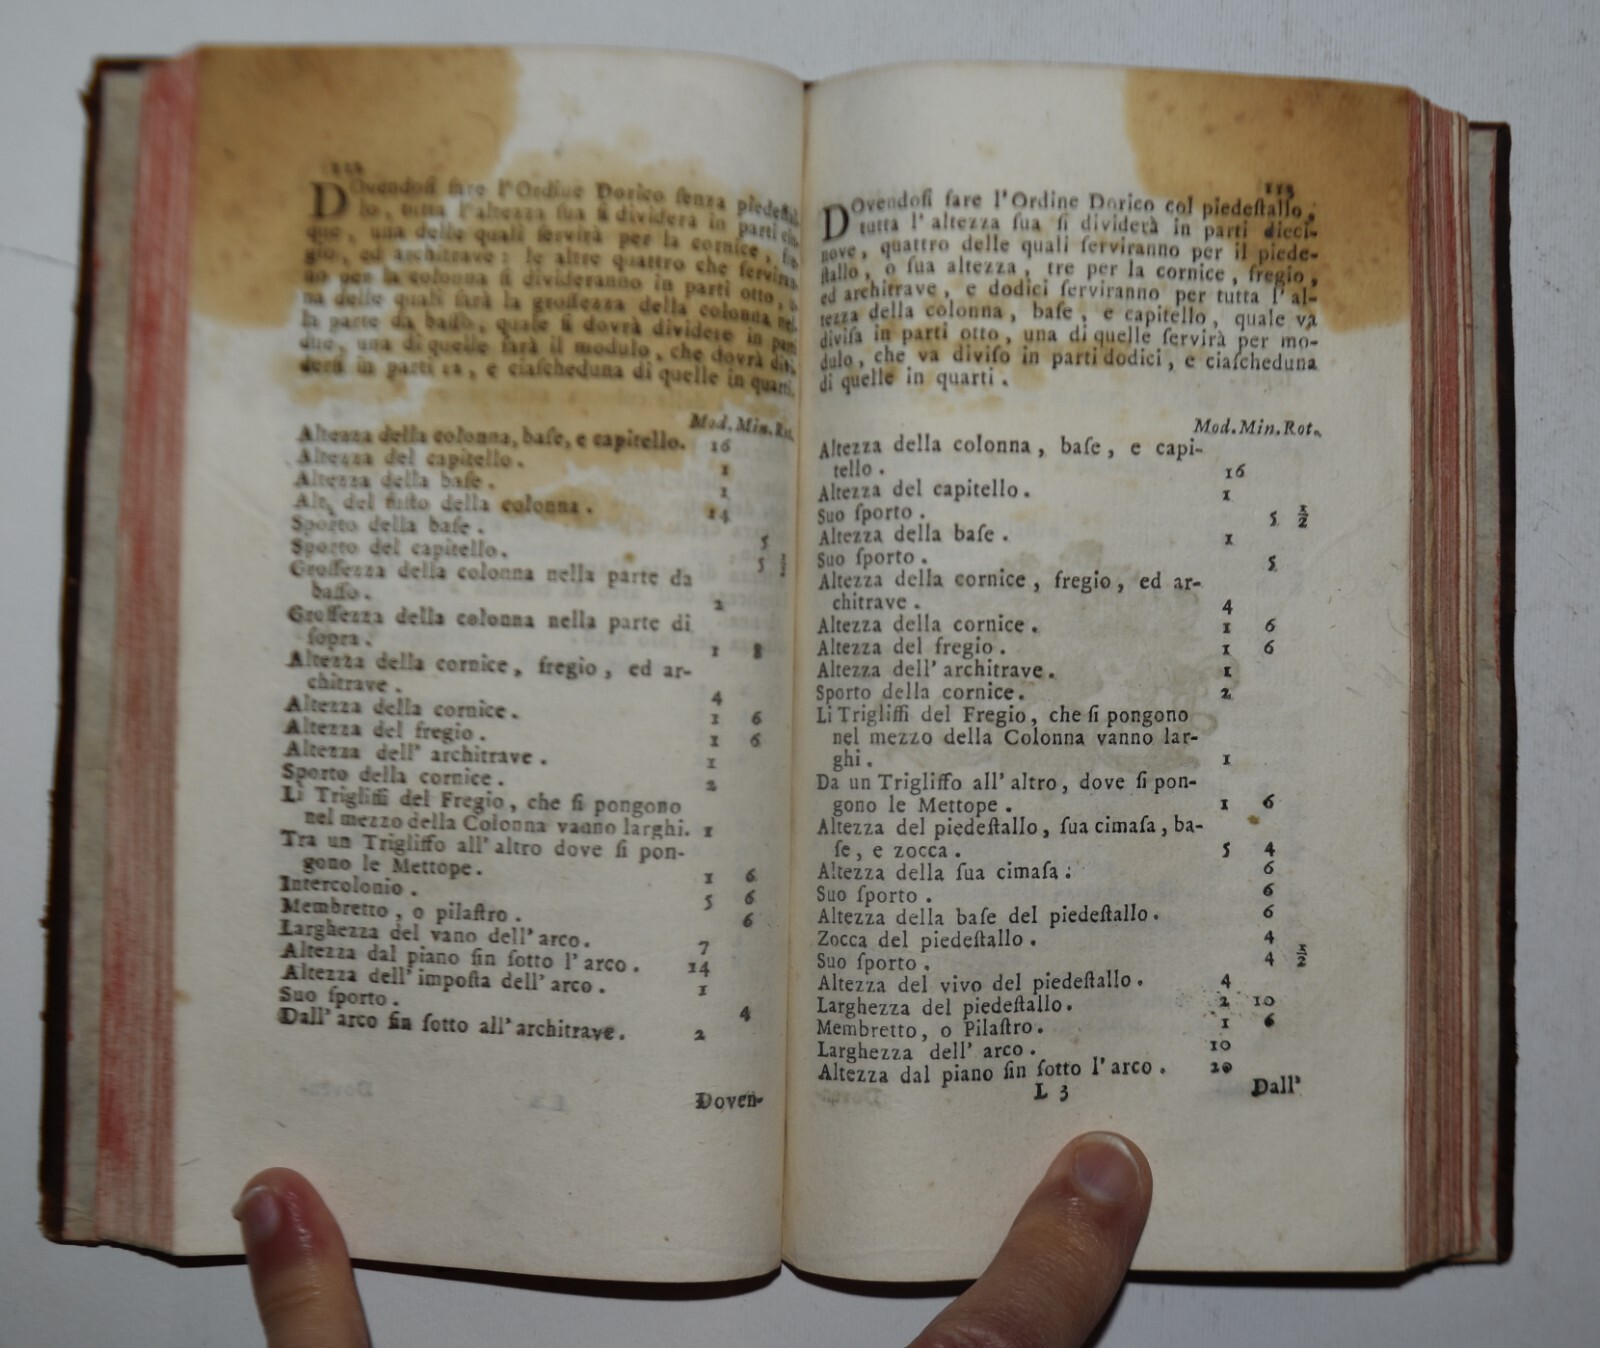 DOvendoſi fare l'Ordine Dorico ſenza piedeſtal-
lo, tutta l'altezza ſua ſi dividerà in parti cin-
que, una delle quali ſervirà per la cornice, fre-
gio, ed architrave: le altre quattro che ſerviran-
no per la colonna ſi divideranno in parti otto, u-
na delle quali ſarà la groſſezza della colonna nel-
la parte da baſſo, quale ſi dovrà dividere in parti
due, una di quelle ſarà il modulo, che dovrà divi-
derſi in parti 12, e ciaſcheduna di quelle in quarti.
Mod. Min. Rot.
Altezza della colonna, baſe, e capitello. 16
Altezza del capitello. 1
Altezza della baſe. 1
Alt. del fuſto della colonna. 14
Sporto della baſe. 5
Sporto del capitello. 5 1/2
Groſſezza della colonna nella parte da
baſſo. 2
Groſſezza della colonna nella parte di
ſopra. 1 8
Altezza della cornice, fregio, ed ar-
chitrave. 4
Altezza della cornice. 1 6
Altezza del fregio. 1 6
Altezza dell' architrave. 1
Sporto della cornice. 2
Li Trigliffi del Fregio, che ſi pongono
nel mezzo della Colonna vanno larghi. 1
Tra un Trigliffo all'altro dove ſi pon-
gono le Mettope. 1 6
Intercolonio. 5 6
Membretto, o pilaſtro. 6
Larghezza del vano dell'arco. 7
Altezza dal piano ſin ſotto l'arco. 14
Altezza dell'impoſta dell'arco. 1
Suo ſporto. 4
Dall'arco ſin ſotto all'architrave. 2
Doven-
113
DOvendoſi fare l'Ordine Dorico col piedeſtallo,
tutta l'altezza ſua ſi dividerà in parti dieci-
nove, quattro delle quali ſerviranno per il piede-
ſtallo, o ſua altezza, tre per la cornice, fregio,
ed architrave, e dodici ſerviranno per tutta l'al-
tezza della colonna, baſe, e capitello, quale va
diviſa in parti otto, una di quelle ſervirà per mo-
dulo, che va diviſo in parti dodici, e ciaſcheduna
di quelle in quarti.
Mod. Min. Rot.
Altezza della colonna, baſe, e capi-
tello. 16
Altezza del capitello. 1
Suo ſporto. 5 1/2
Altezza della baſe. 1
Suo ſporto. 5
Altezza della cornice, fregio, ed ar-
chitrave. 4
Altezza della cornice. 1 6
Altezza del fregio. 1 6
Altezza dell' architrave. 1
Sporto della cornice. 2
Li Trigliffi del Fregio, che ſi pongono
nel mezzo della Colonna vanno lar-
ghi. 1
Da un Trigliffo all' altro, dove ſi pon-
gono le Mettope. 1 6
Altezza del piedeſtallo, ſua cimaſa, ba-
ſe, e zocca. 5 4
Altezza della ſua cimaſa: 6
Suo ſporto. 6
Altezza della baſe del piedeſtallo. 6
Zocca del piedeſtallo. 4
Suo ſporto. 4 1/2
Altezza del vivo del piedeſtallo. 4
Larghezza del piedeſtallo. 2 10
Membretto, o Pilaſtro. 1 6
Larghezza dell' arco. 10
Altezza dal piano ſin ſotto l'arco. 20
L 3 Dall'